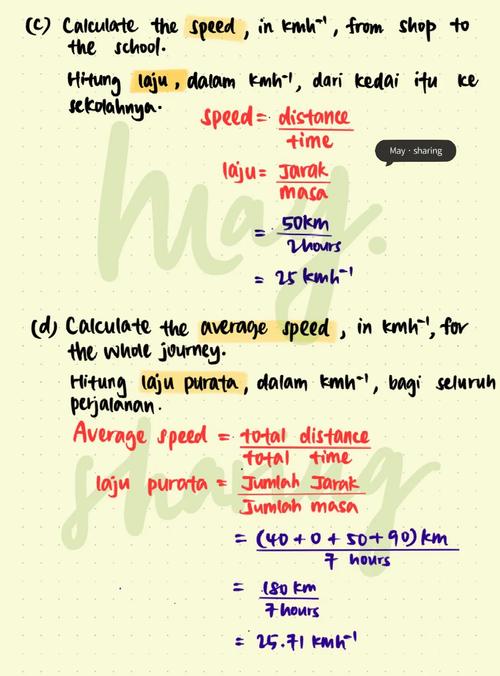 (c) Calculate the speed, in kmh⁻¹, from shop to
the school.
Hitung laju, dalam kmh⁻¹, dari kedai itu ke
sekolahnya.
speed = distance
time
May · sharing
laju = Jarak
masa
= 50km
2hours
= 25 kmh⁻¹
may.
(d) Calculate the average speed, in kmh⁻¹, for
the whole journey.
Hitung laju purata, dalam kmh⁻¹, bagi seluruh
perjalanan.
Average speed = total distance
total time
laju purata = Jumlah Jarak
Jumlah masa
sharing
= (40 + 0 + 50 + 90) km
7 hours
= 180 km
7 hours
= 25.71 kmh⁻¹